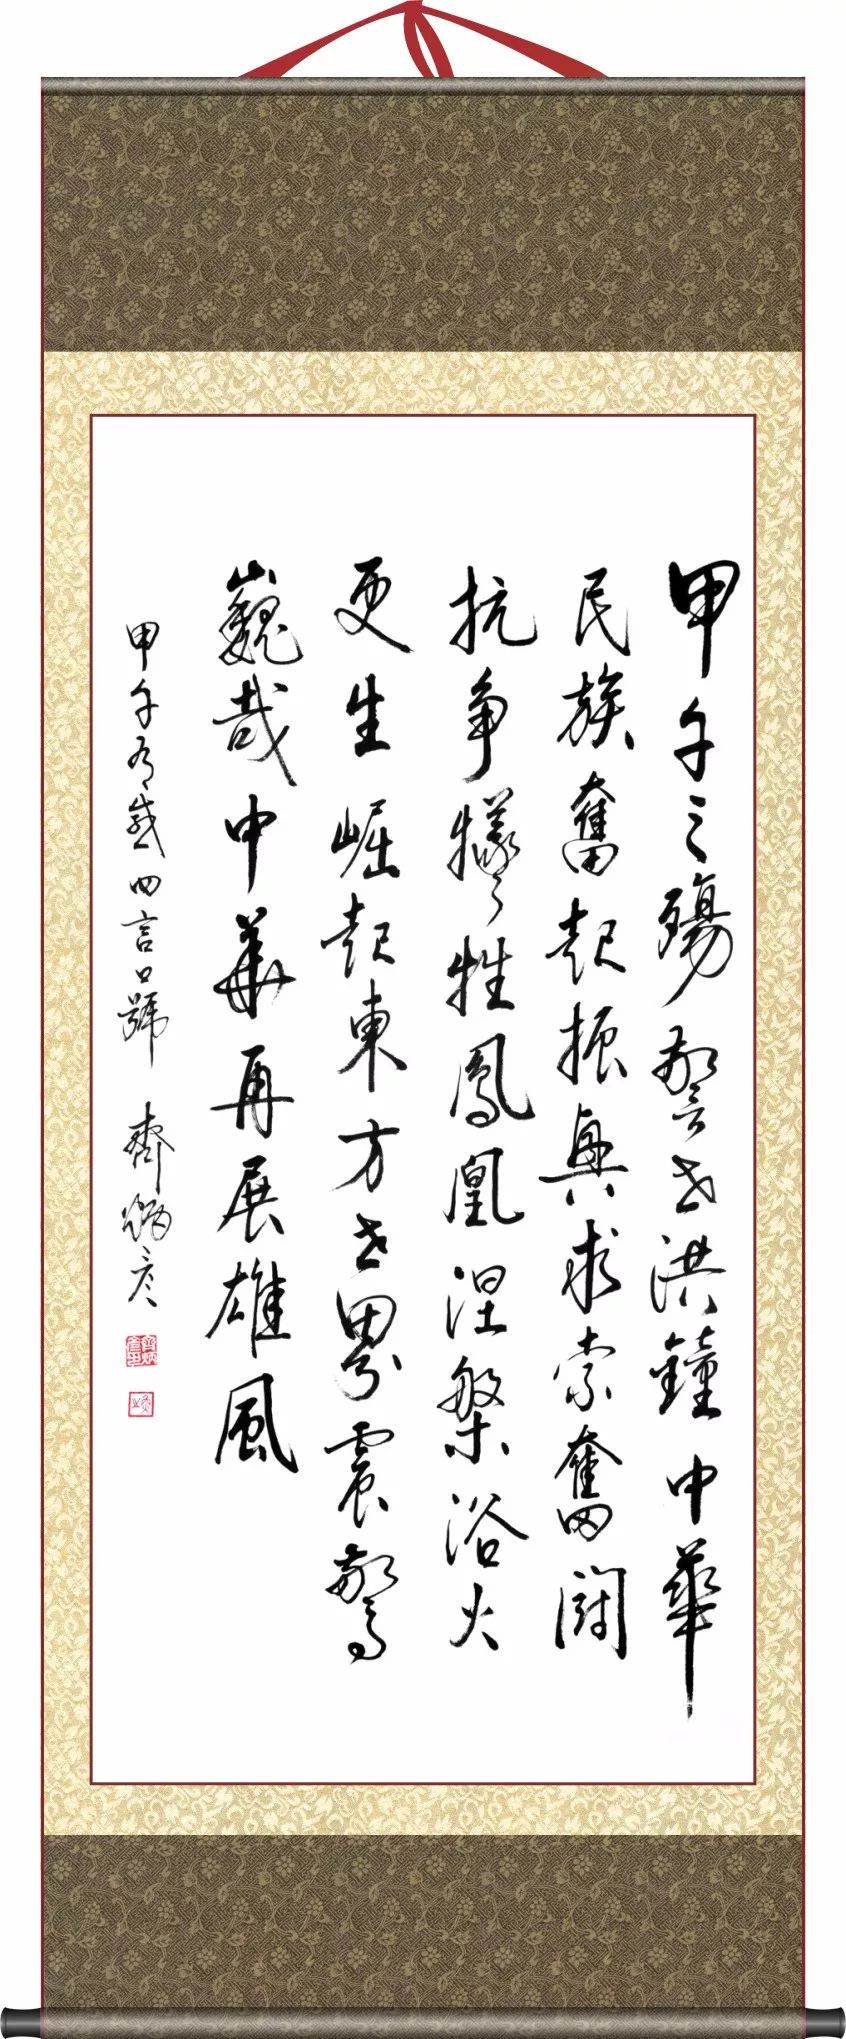 甲午之殤警世洪鐘中華
民族奮起振興求索奮闘
抗争犧牲鳳凰涅槃浴火
更生崛起東方世界震驚
巍哉中華再展雄風
甲午有感四言口號 齊炳彦